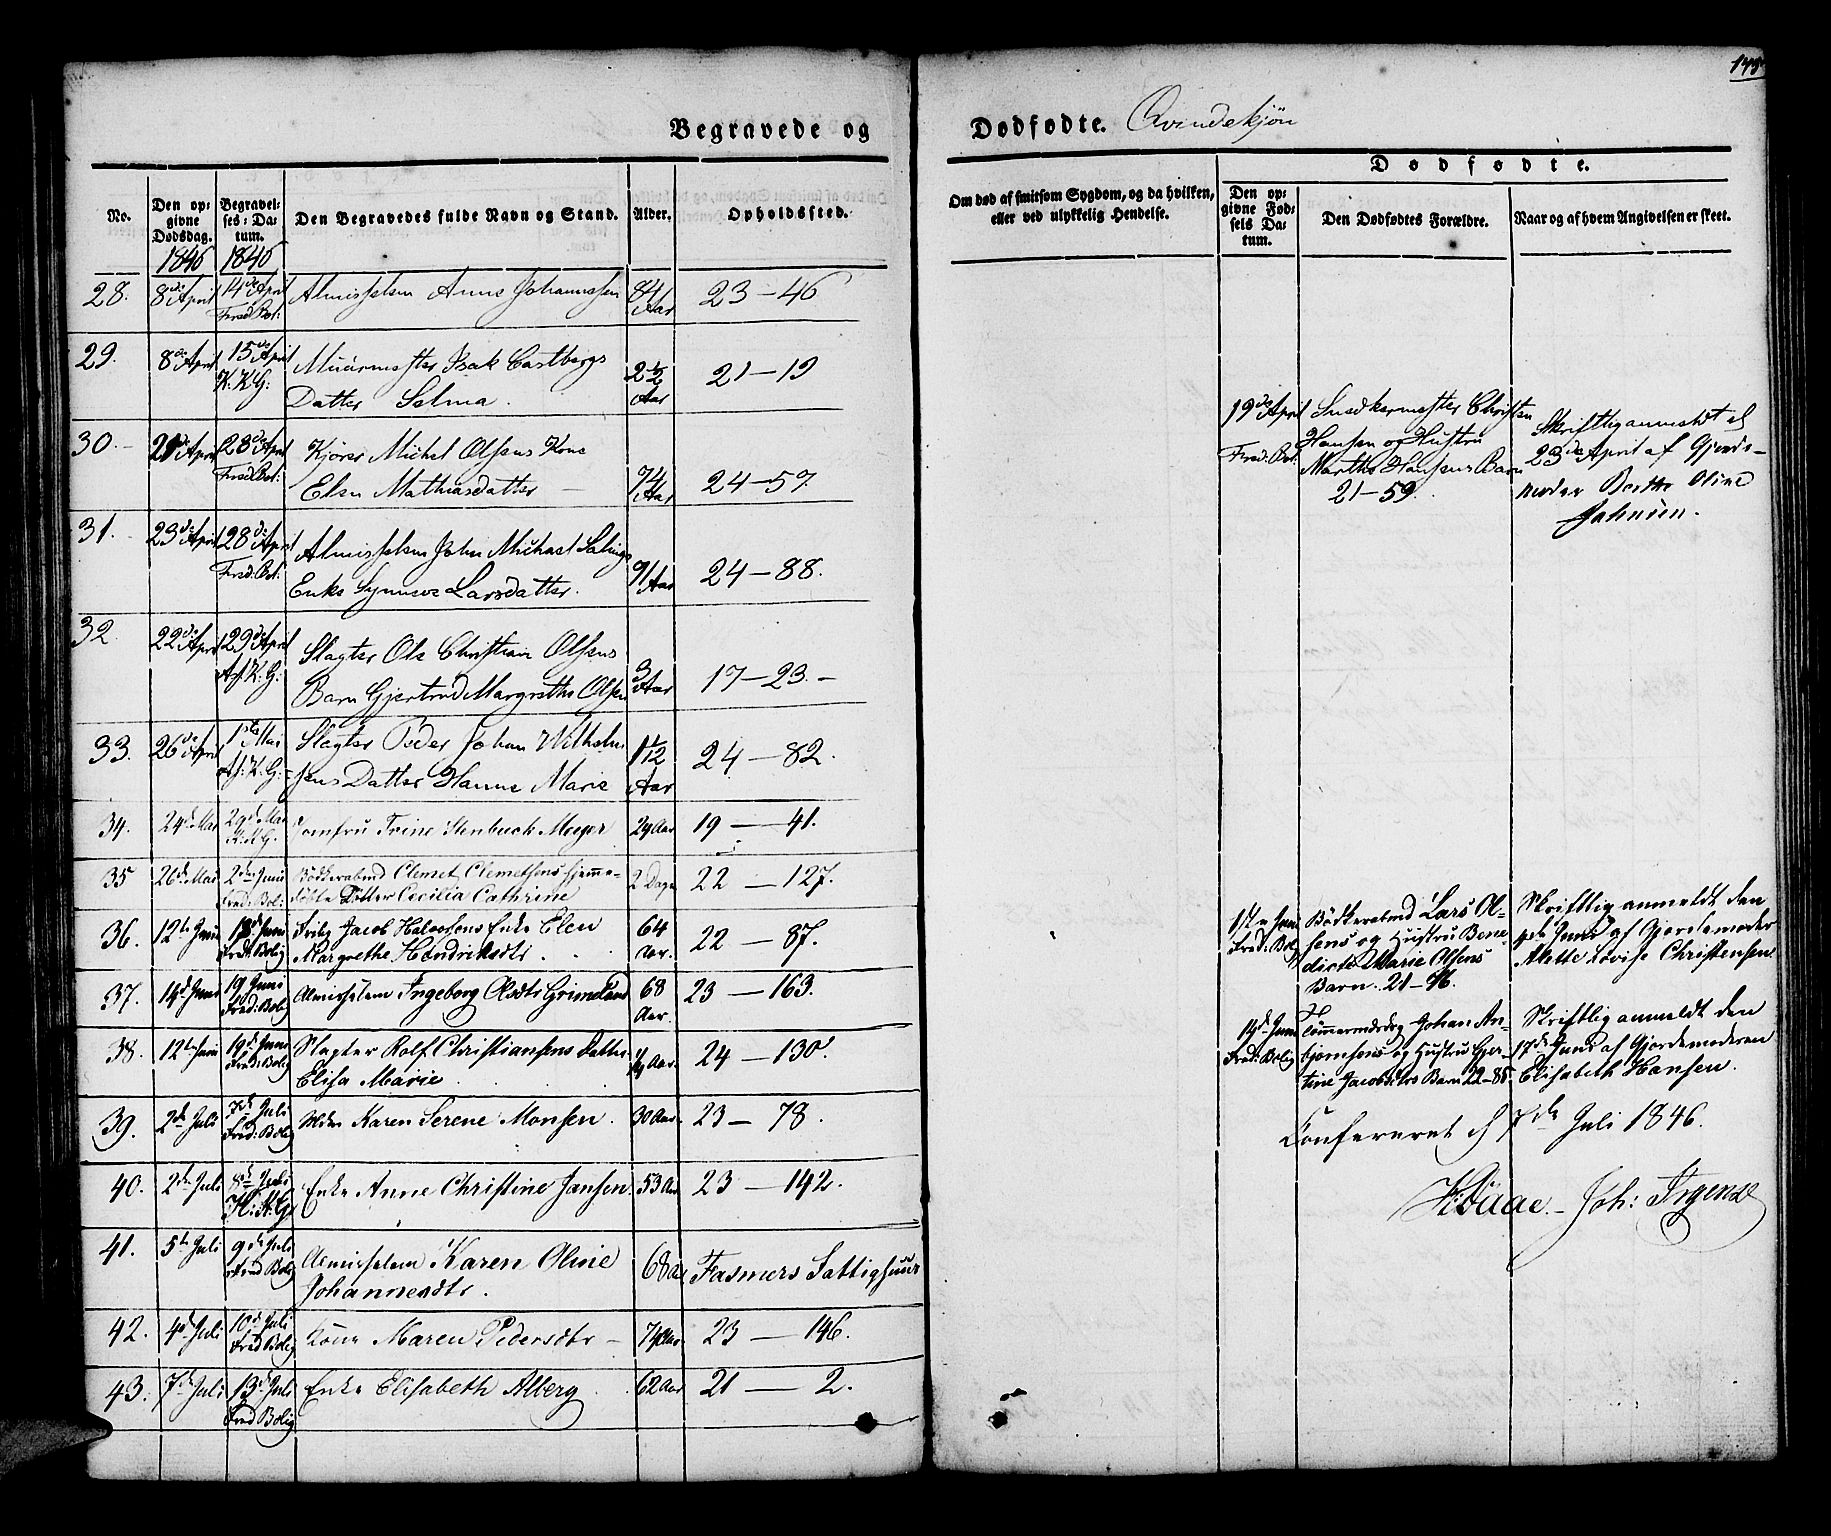 148
Begravede og Dødfødte. Qvindekjøn
No.
Den opgivne Dødsdag.
Begravelses-Datum.
Den Begravedes fulde Navn og Stand.
Alder.
Opholdssted.
Om død af smitsom Sygdom, og da hvilken, eller ved ulykkelig Hendelse.
Dødfødte.
Den opgivne Fødsels Datum.
Den Dødfødtes Forældre.
Naar og af hvem Angivelsen er skeet.
1846 1846
28. 8de April 14de April Fred. Bol: Almisselem Anne Johannessen 84 Aar 23 – 46
29. 8de April 15de April K. K G: Muurmester Isak Castbergs
Datter Selma. 2½ Aar 21 – 19
30. – 21de April 28de April Fred. Bol: Kjører Michel Olsens Kone
Elsn Mathiasdatter – 74 Aar 24 – 57.
31. – 23de April 28de April Fred. Bol: Almisselem John Michael
Enke Larsdatter. 91 Aar 24 – 88.
32. 22de April 29de April Af. K. G: Slagter Ole Christian Olsens
Barn Gjertrud Margrethe Olsen 3 Aar 17 – 23. –
33. 26de April 1ste Mai Af. K. G: Slagter Peder Johan Wilhelm
sens Datter Hanne Marie 1 1/12 Aar 24 – 82.
34. 24de Mai 29de Mai K. K G. Jomfru Trine Stenbuch Meyer 29 Aar 19 – 41.
35 26de Mai 2den Juni Fred: Bol: Bødkersvend Clemet Clemetsens hjemme-
døbte Datter Cecilia Cathrine 2 Dage 22 – 127.
36. 12te Juni 18de Juni Fred: Bolig Jacob Halvorsens Enke Elen
Margrethe Hendriksdtr. 64 Aar. 22 – 87.
37. 14de Juni 19 Juni Fred: Bolig Almisselem Ingeborg Olsdtr Grimeland 68 Aar. 23 – 163.
38. 12te Juni 19de Juni Fred: Bolig Slagter Rolf Christiansens Datter
Elisa Marie Aar. 24 – 130.
39. 2de Juli 7de Juli Fred: Bolig Karen Serene Monsen. 30 Aar. 23 – 78.
40. 2de Juli 8de Juli K. G Enke Anne Christine Jansen. 53 Aar 23 – 142.
41. 5te Juli 9de Juli Fred Bolig Almisselem Karen Oline
Johannesdtr. 68 Aar Fasmers Fattighuus
42. 4de Juli 10de Juli Fred Bolig Kone Maren Pedersdtr – 74 Aar 23 – 146.
43. 7de Juli 13de Juli Fred Bolig Enke Elisabeth Alberg 62 Aar 21 – 2.
19de April Fred. Bol: Snedkermester Christen
Hansen og Hustru
Marthe Hansens Barn
21 – 59.
Skriftlig anmeldt d
23de April af Gjorde-
moder Berthe Oline
Johnsen.
Juni Fred: Bol: Bødkersvend Lars Ol-
sens og Hustru Bene-
dicte Marie Olsens
Barn. 21 – 46.
Skriftlig anmeldt den
4de Juni af Gjordemoder
Alette Lovise Christensen.
14de Juni Fred: Bolig Tømmermdrg Johan An-
bjørnsens og Hustru Gjer-
tine Jacobsdtrs Barn 22 – 85
Skriftlig anmeldt den
17de Juni af Gjordemoderen
Elisabeth Hansen.
Confereret d 7de Juli 1846.
Joh: Irgens